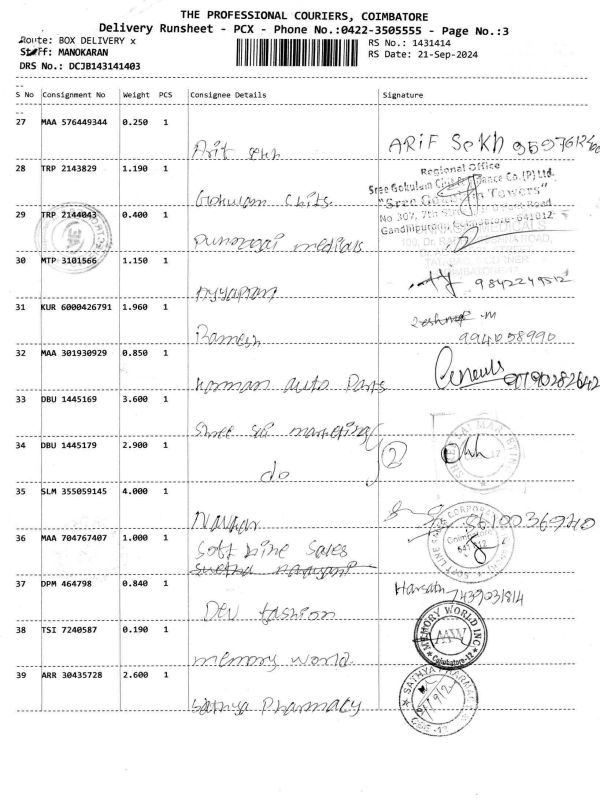 THE PROFESSIONAL COURIERS, COIMBATORE
Delivery Runsheet - PCX - Phone No.:0422-3505555 - Page No.:3
Route: BOX DELIVERY x
RS No.: 1431414
Staff: MANOKARAN
RS Date: 21-Sep-2024
DRS No.: DCJB143141403
S No Consignment No Weight PCS Consignee Details Signature
27 MAA 576449344 0.250 1
Arif Sekh ARIF SEKH
28 TRP 2143829 1.190 1
Regional Office
Gokulam Chits
"Sree Gokulam Towers"
29 TRP 2144043 0.400 1
No 307, 7th
Gandhipuram, Coimbatore-641012
Punnagai medicals
30 MTP 3101566 1.150 1
Ayyappan 9842249512
31 KUR 6000426791 1.960 1
Ramesh 994058990
32 MAA 301930929 0.850 1
norman auto Parts
33 DBU 1445169 3.600 1
Shree sai marketing
34 DBU 1445179 2.900 1
do 2
35 SLM 355059145 4.000 1
36 MAA 704767407 1.000 1
Soft Line Sales
Coimbatore
641 012
37 DPM 464798 0.840 1
Harsath 7439031814
Dev fashion
38 TSI 7240587 0.190 1
MEMORY WORLD INC
MW
Coimbatore-12
memory world
39 ARR 30435728 2.600 1
SATHYA PHARMACY
Sathya Pharmacy
CBE-12